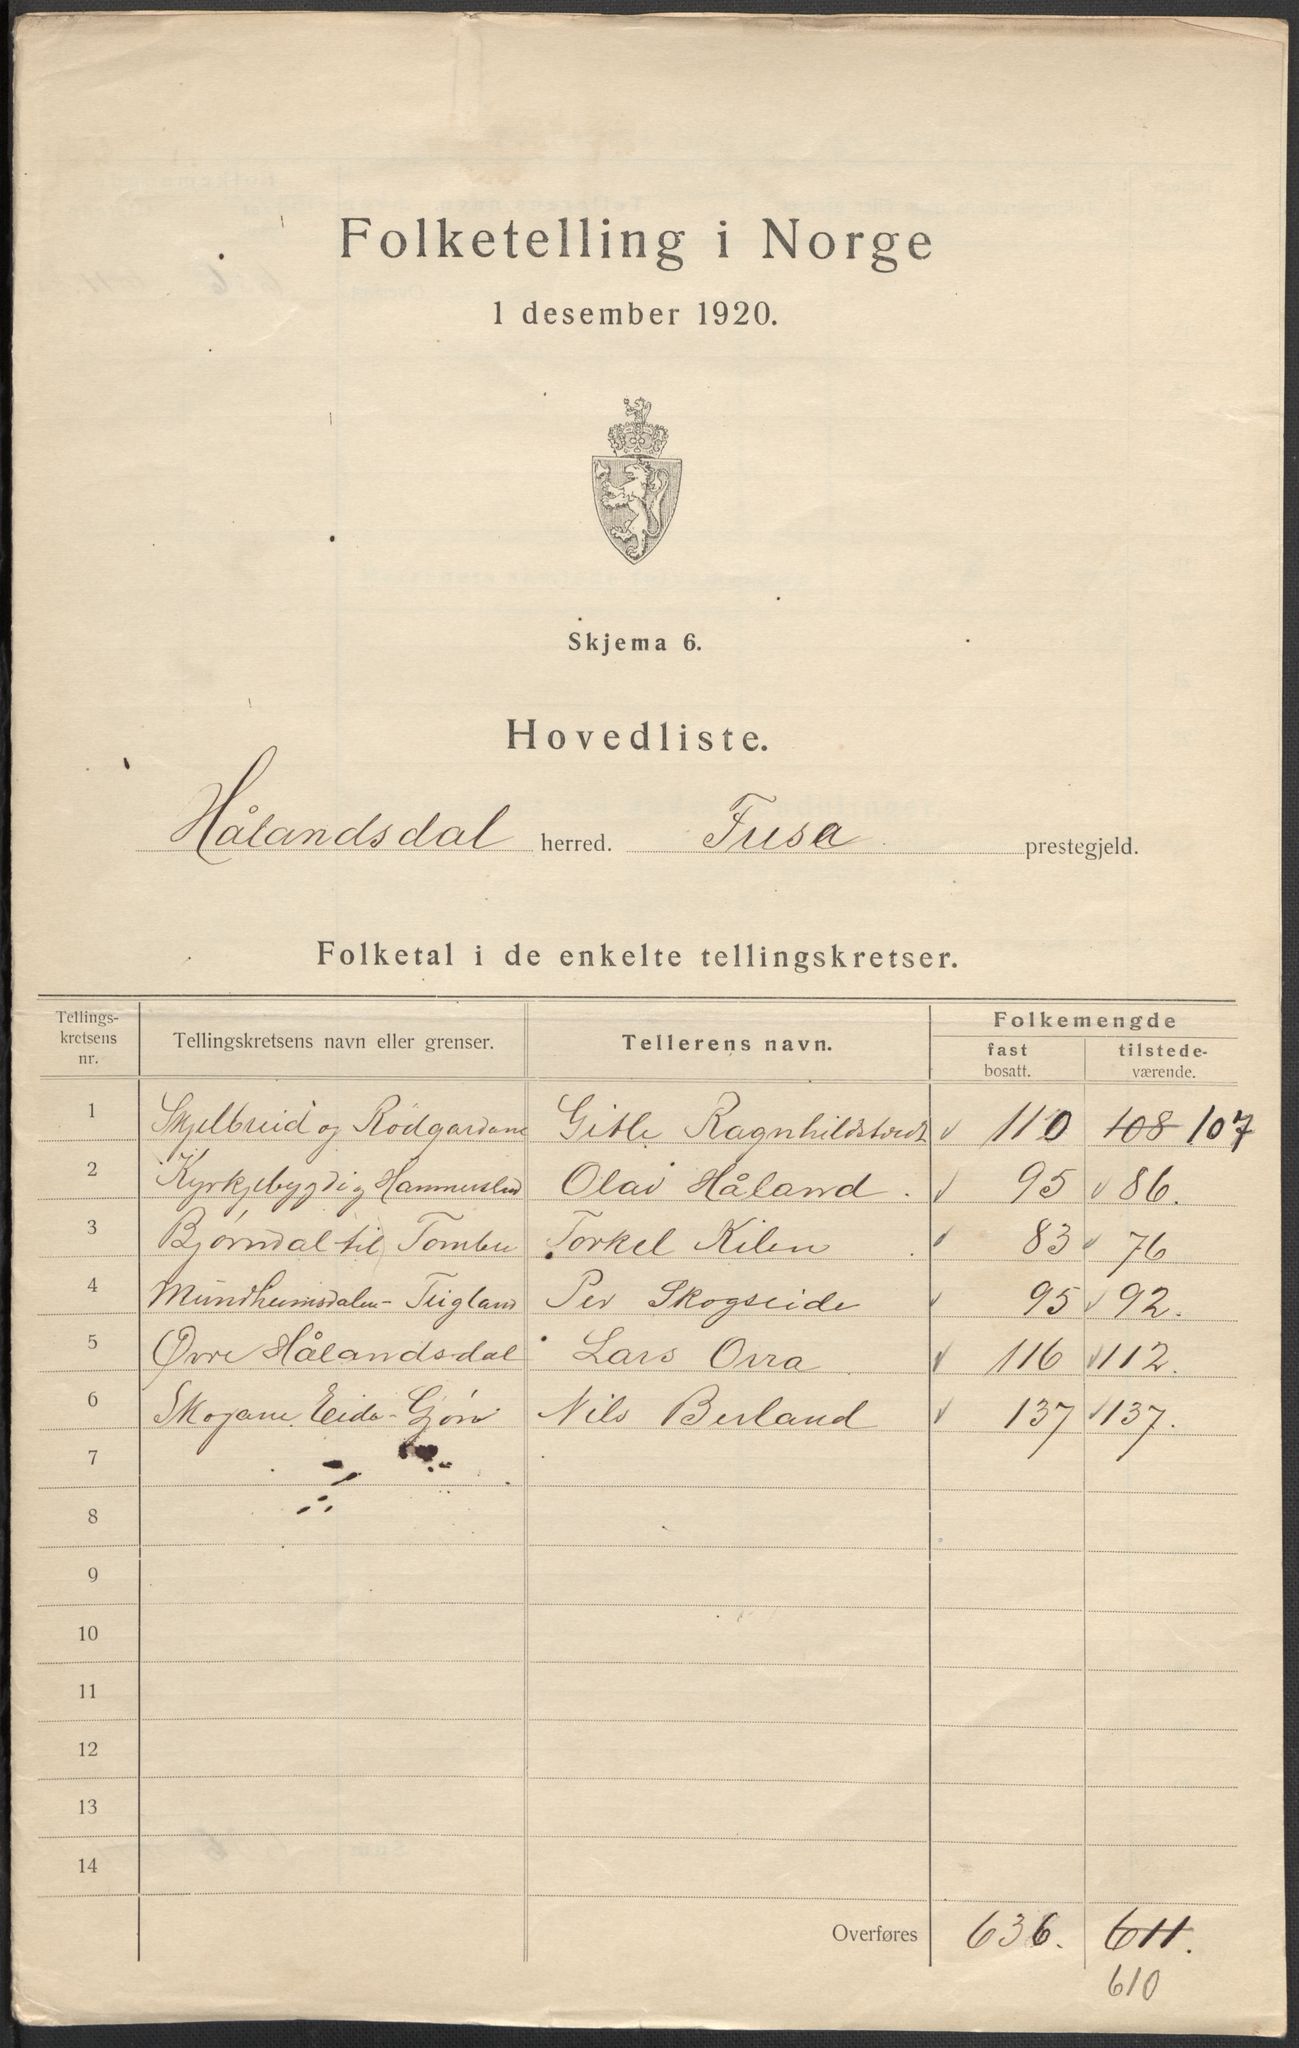 Folketelling i Norge
1 desember 1920.
Skjema 6.
Hovedliste.
Hålandsdal herred. Fusa prestegjeld.
Folketal i de enkelte tellingskretser.
Tellings-kretsens nr. Tellingskretsens navn eller grenser. Tellerens navn. Folkemengde
fast bosatt. tilstede-værende.
1 Skjelbreid og Rödgardane Gitle Ragnhildstveit 110 108 107
2 Kyrkjebygdi og Olav Håland 95 86.
3 Bjørndal til Tombre Torkel Kilen 83 76
4 Mundheimsdalen - Teigland Per Skogseide 95 92.
5 Øvre Hålandsdal Lars Orra 116 112.
6 Skogane Eide - Gjøn Nils Berland 137 137.
7
8
9
10
11
12
13
14
Overføres 636. 611.
610